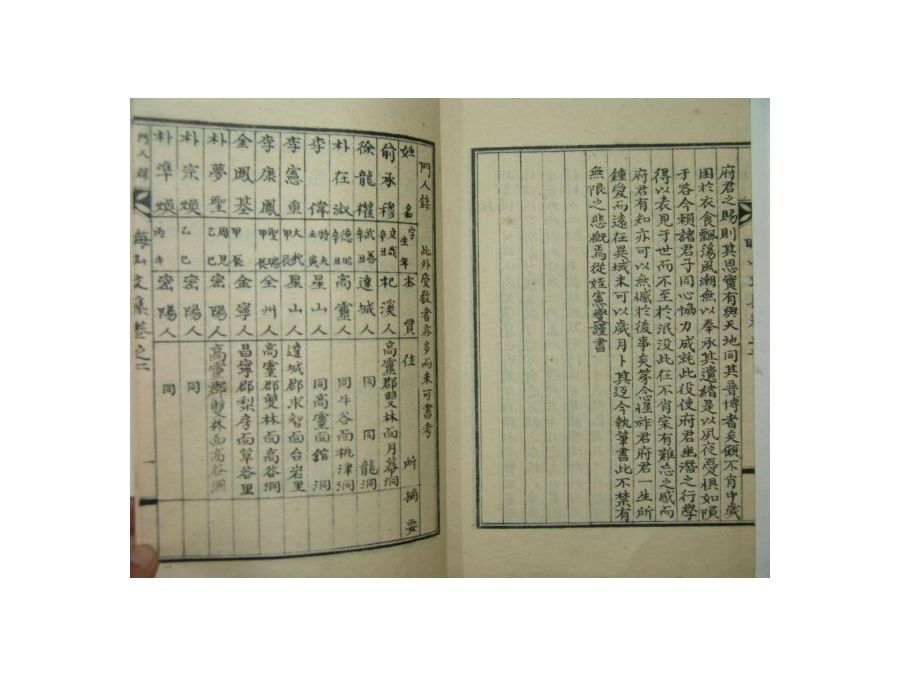 府君之賜則其恩實有與天地同其普博者矣顧不肖中歲
困於衣食飄蕩風潮無以奉承其遺緖是以夙夜憂惧如隕
于谷今賴諸君子同心協力成就此役使府君幽潛之行學
得以表見于世而不至於泯沒此在不肖家有難忘之感而
府君有知亦可以無憾於後事矣第念惺祚君府君一生所
鍾愛而遠在異域未可以歲月卜其迈今執筆書此不禁有
無限之悲慨焉從姪憲燮謹書
門人錄 此外受敎者亦多而未可書考
姓名 字 生年 本貫 住所 摘要
俞承穆 文哉 辛丑 杞溪人 高靈郡雙林面月幕洞
徐龍櫂 武善 辛丑 達城人 同 同 龍洞
朴在淑 德 辛 高靈人 同牛谷面桃津洞
李偉 特夫 壬寅 星山人 同高靈面舘洞
李憲重 大哉 甲辰 星山人 達城郡求智面台岩里
李康鳳 聖瑞 甲辰 全州人 高靈郡雙林面高谷洞
金鳳基 甲辰 金寧人 昌寧郡梨房面草谷里
朴夢聖 周見 乙巳 密陽人 高靈郡雙林面高谷洞
朴宗煥 乙巳 密陽人 同
朴準煥 丙午 密陽人 同
門人錄 海山文集卷之二 一